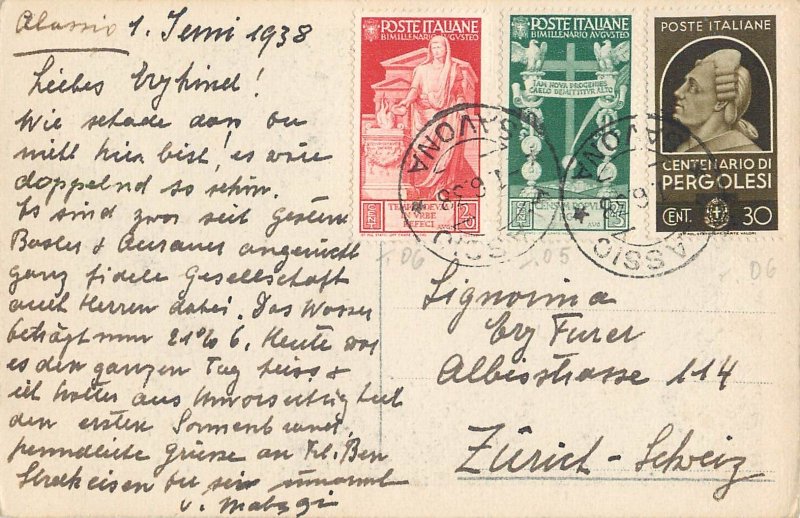 Alassio 1. Juni 1938
Liebes Erykind!
Wie schade dass du
nicht hier bist! es wäre
doppelnd so schön.
Es sind zwar seit Gestern
Basler & Aarauer angerückt
ganz fidele Gesellschaft
auch Herren dabei. Das Wasser
beträgt nun 21° C. Heute war
es den ganzen Tag heiss &
ich holter aus Unvorsichtigkeit
den ersten Sonnenbrand.
freundliche Grüsse an Frl. Ben
Streckeisen du sei umarmt
v.
POSTE ITALIANE
BIMILLENARIO AUGUSTEO
CENT 20
POSTE ITALIANE
BIMILLENARIO AUGUSTEO
IAM NOVA PROGENIES
CAELO DEMITTITUR ALTO
POSTE ITALIANE
CENTENARIO DI
PERGOLESI
CENT. 30
ALASSIO
SAVONA
1.6.38
ALASSIO
SAVONA
06
05
06
Signorina
Ery Furer
Albisstrasse 114
Zürich - Schweiz